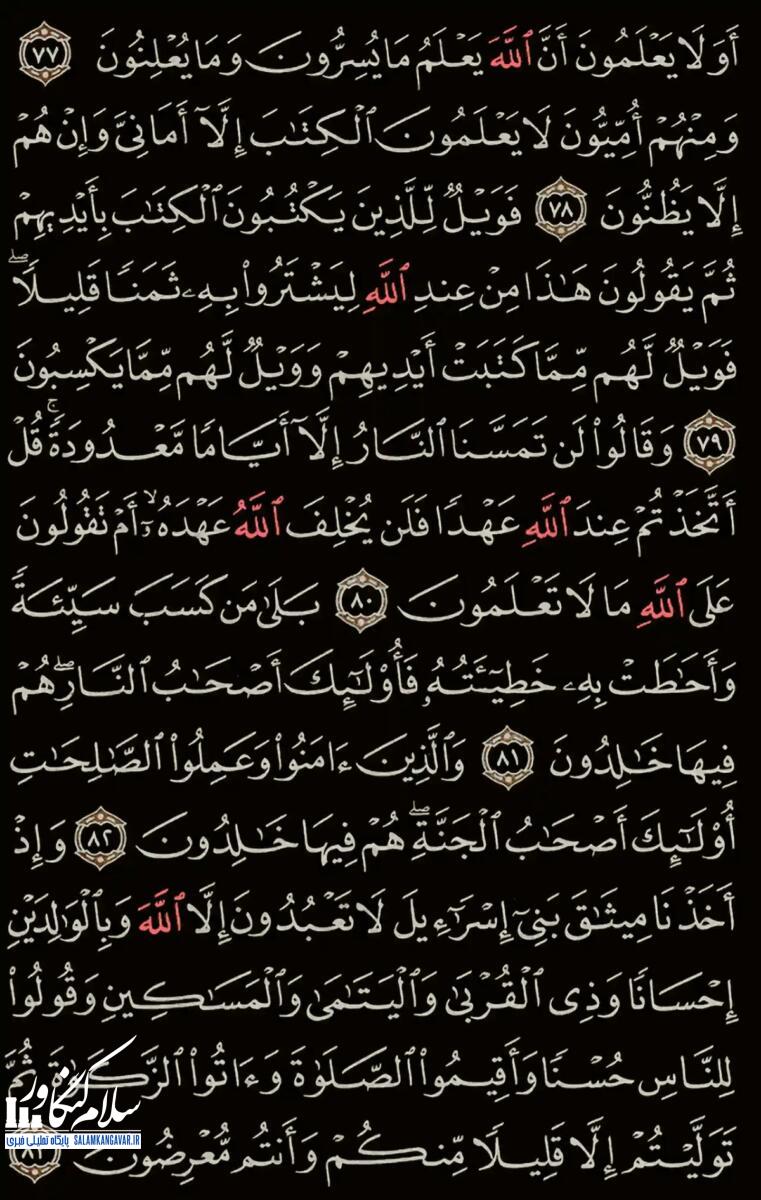 أَوَلَا يَعْلَمُونَ أَنَّ ٱللَّهَ يَعْلَمُ مَا يُسِرُّونَ وَمَا يُعْلِنُونَ ٧٧
وَمِنْهُمْ أُمِّيُّونَ لَا يَعْلَمُونَ ٱلْكِتَـٰبَ إِلَّآ أَمَانِىَّ وَإِنْ هُمْ
إِلَّا يَظُنُّونَ ٧٨ فَوَيْلٌ لِّلَّذِينَ يَكْتُبُونَ ٱلْكِتَـٰبَ بِأَيْدِيهِمْ
ثُمَّ يَقُولُونَ هَـٰذَا مِنْ عِندِ ٱللَّهِ لِيَشْتَرُوا۟ بِهِۦ ثَمَنًا قَلِيلًاۖ
فَوَيْلٌ لَّهُم مِّمَّا كَتَبَتْ أَيْدِيهِمْ وَوَيْلٌ لَّهُم مِّمَّا يَكْسِبُونَ
٧٩ وَقَالُوا۟ لَن تَمَسَّنَا ٱلنَّارُ إِلَّآ أَيَّامًا مَّعْدُودَةًۚ قُلْ
أَتَّخَذْتُمْ عِندَ ٱللَّهِ عَهْدًا فَلَن يُخْلِفَ ٱللَّهُ عَهْدَهُۥٓۙ أَمْ تَقُولُونَ
عَلَى ٱللَّهِ مَا لَا تَعْلَمُونَ ٨٠ بَلَىٰ مَن كَسَبَ سَيِّئَةً
وَأَحَـٰطَتْ بِهِۦ خَطِيٓـَٔتُهُۥ فَأُو۟لَـٰٓئِكَ أَصْحَـٰبُ ٱلنَّارِۖ هُمْ
فِيهَا خَـٰلِدُونَ ٨١ وَٱلَّذِينَ ءَامَنُوا۟ وَعَمِلُوا۟ ٱلصَّـٰلِحَـٰتِ
أُو۟لَـٰٓئِكَ أَصْحَـٰبُ ٱلْجَنَّةِۖ هُمْ فِيهَا خَـٰلِدُونَ ٨٢ وَإِذْ
أَخَذْنَا مِيثَـٰقَ بَنِىٓ إِسْرَـٰٓءِيلَ لَا تَعْبُدُونَ إِلَّا ٱللَّهَ وَبِٱلْوَٰلِدَيْنِ
إِحْسَانًا وَذِى ٱلْقُرْبَىٰ وَٱلْيَتَـٰمَىٰ وَٱلْمَسَـٰكِينِ وَقُولُوا۟
لِلنَّاسِ حُسْنًا وَأَقِيمُوا۟ ٱلصَّلَوٰةَ وَءَاتُوا۟ ٱلزَّكَوٰةَ ثُمَّ
تَوَلَّيْتُمْ إِلَّا قَلِيلًا مِّنكُمْ وَأَنتُم مُّعْرِضُونَ ٨٣
سلام کنگاور
پایگاه تحلیلی خبری SALAMKANGAVAR.IR